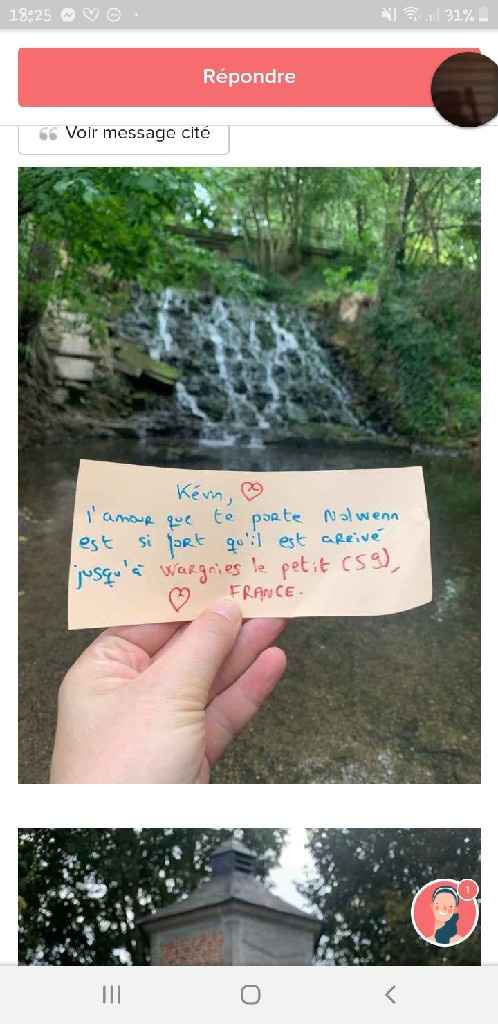 18:25
31%
Répondre
Voir message cité
Kévin,
l'amour que te porte Nolwenn
est si fort qu'il est arrivé
jusqu'à Wargnies le petit (59),
FRANCE.
1